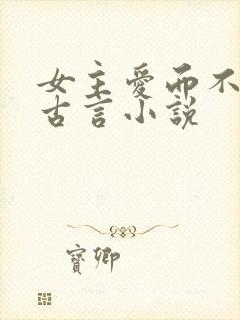 女主愛而不
古言小說
寶卿